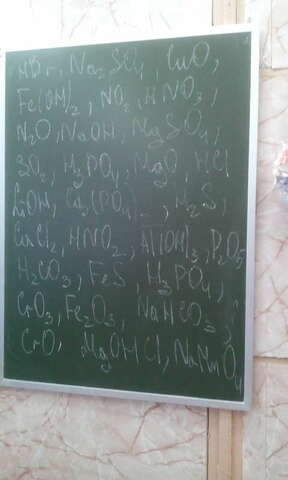 HBr, Na₂SO₄, CuO,
Fe(OH)₂, NO₂, HNO₃,
N₂O, NaOH, MgSO₄,
SO₂, H₃PO₄, MgO, HCl
LiOH, Ca₃(PO₄)₂, H₂S,
CaCl₂, HNO₂, Al(OH)₃, P₂O₅
H₂CO₃, FeS, H₃PO₄,
CrO₃, Fe₂O₃, NaHCO₃,
CrO, MgOHCl, NaMnO₄